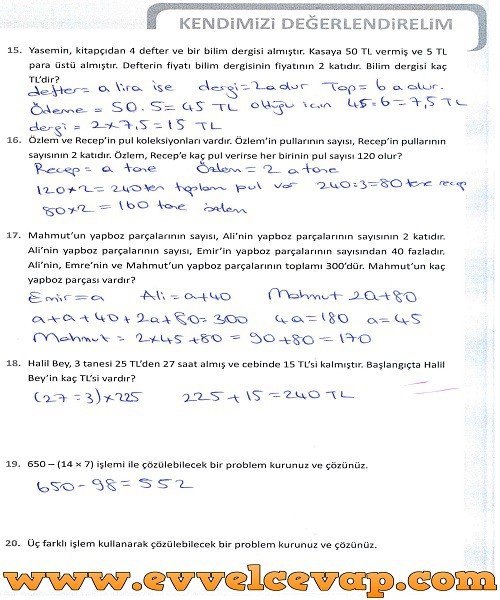 KENDİMİZİ DEĞERLENDİRELİM
15. Yasemin, kitapçıdan 4 defter ve bir bilim dergisi almıştır. Kasaya 50 TL vermiş ve 5 TL
para üstü almıştır. Defterin fiyatı bilim dergisinin fiyatının 2 katıdır. Bilim dergisi kaç
TL'dir?
defter = a lira ise dergi = 2a dır Top = 6a olur.
Ödeme = 50.5 = 45 TL olduğu için 45:6 = 7,5 TL
dergi = 2x7,5 = 15 TL
16. Özlem ve Recep'in pul koleksiyonları vardır. Özlem'in pullarının sayısı, Recep'in pullarının
sayısının 2 katıdır. Özlem, Recep'e kaç pul verirse her birinin pul sayısı 120 olur?
Recep = a tane Özlem = 2 a tane
120x2 = 240 tan toplam pul var 240:3 = 80 tane recep
80x2 = 160 tane özlem
17. Mahmut'un yapboz parçalarının sayısı, Ali'nin yapboz parçalarının sayısının 2 katıdır.
Ali'nin yapboz parçalarının sayısı, Emir'in yapboz parçalarının sayısından 40 fazladır.
Ali'nin, Emre'nin ve Mahmut'un yapboz parçalarının toplamı 300'dür. Mahmut'un kaç
yapboz parçası vardır?
Emir = a Ali = a+40 Mahmut 2a+80
a+a+40+2a+80=300 4a=180 a=45
Mahmut = 2x45+80 = 90+80 = 170
18. Halil Bey, 3 tanesi 25 TL'den 27 saat almış ve cebinde 15 TL'si kalmıştır. Başlangıçta Halil
Bey'in kaç TL'si vardır?
(27÷3)x225 225+15=240 TL
19. 650 – (14 × 7) işlemi ile çözülebilecek bir problem kurunuz ve çözünüz.
650-98=552
20. Üç farklı işlem kullanarak çözülebilecek bir problem kurunuz ve çözünüz.
www.evvelcevap.com